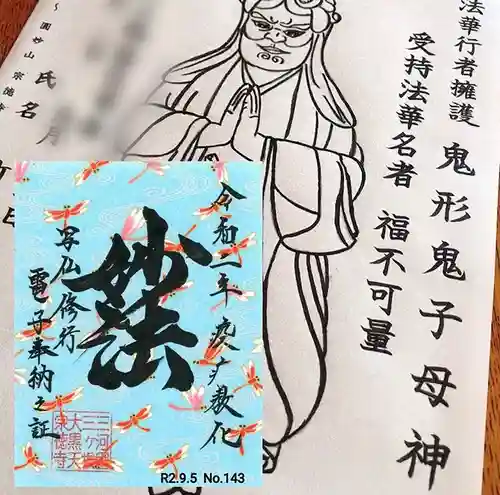 法華行者擁護
鬼形鬼子母神
受持法華名者
福不可量
圓妙山 宗徳寺
氏名
月
令和二年 疫病教化
妙法
写仏修行
電子奉納之証
三河国
三ヶ根
大黒天
宗徳寺
R2.9.5 No.143